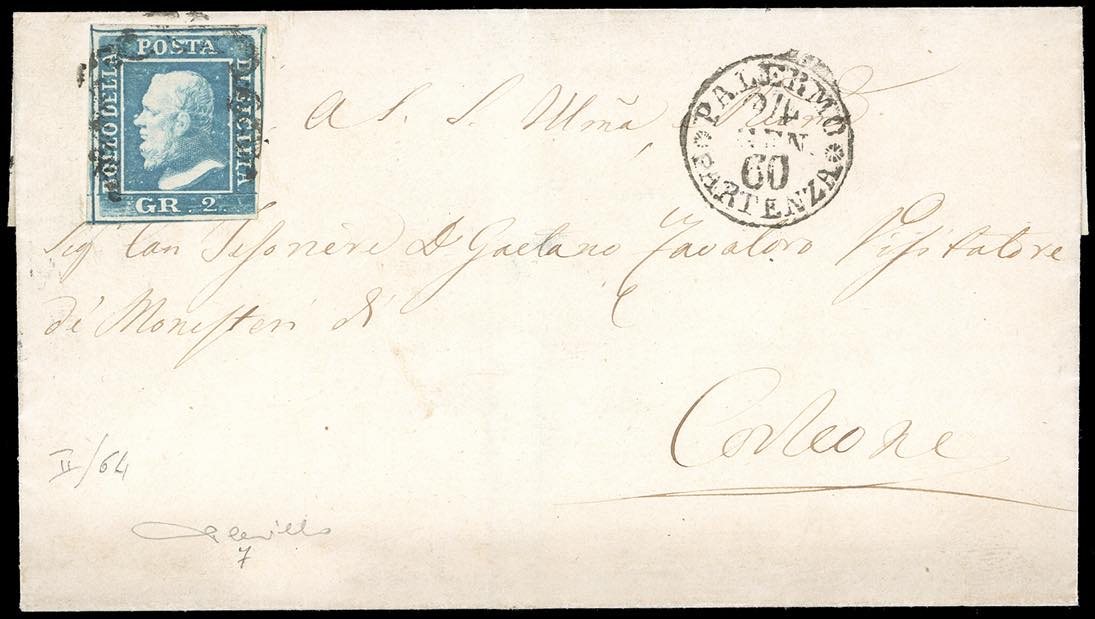 POSTA
BOLLO DELLA
DI SICILIA
GR. 2.
PALERMO
GEN
60
PARTENZA
A S. S. Illm̃a
Sig Can Tesoriere D. Gaetano Zavaloro Visitatore
de' Monisteri di
Corleone
II/64
7